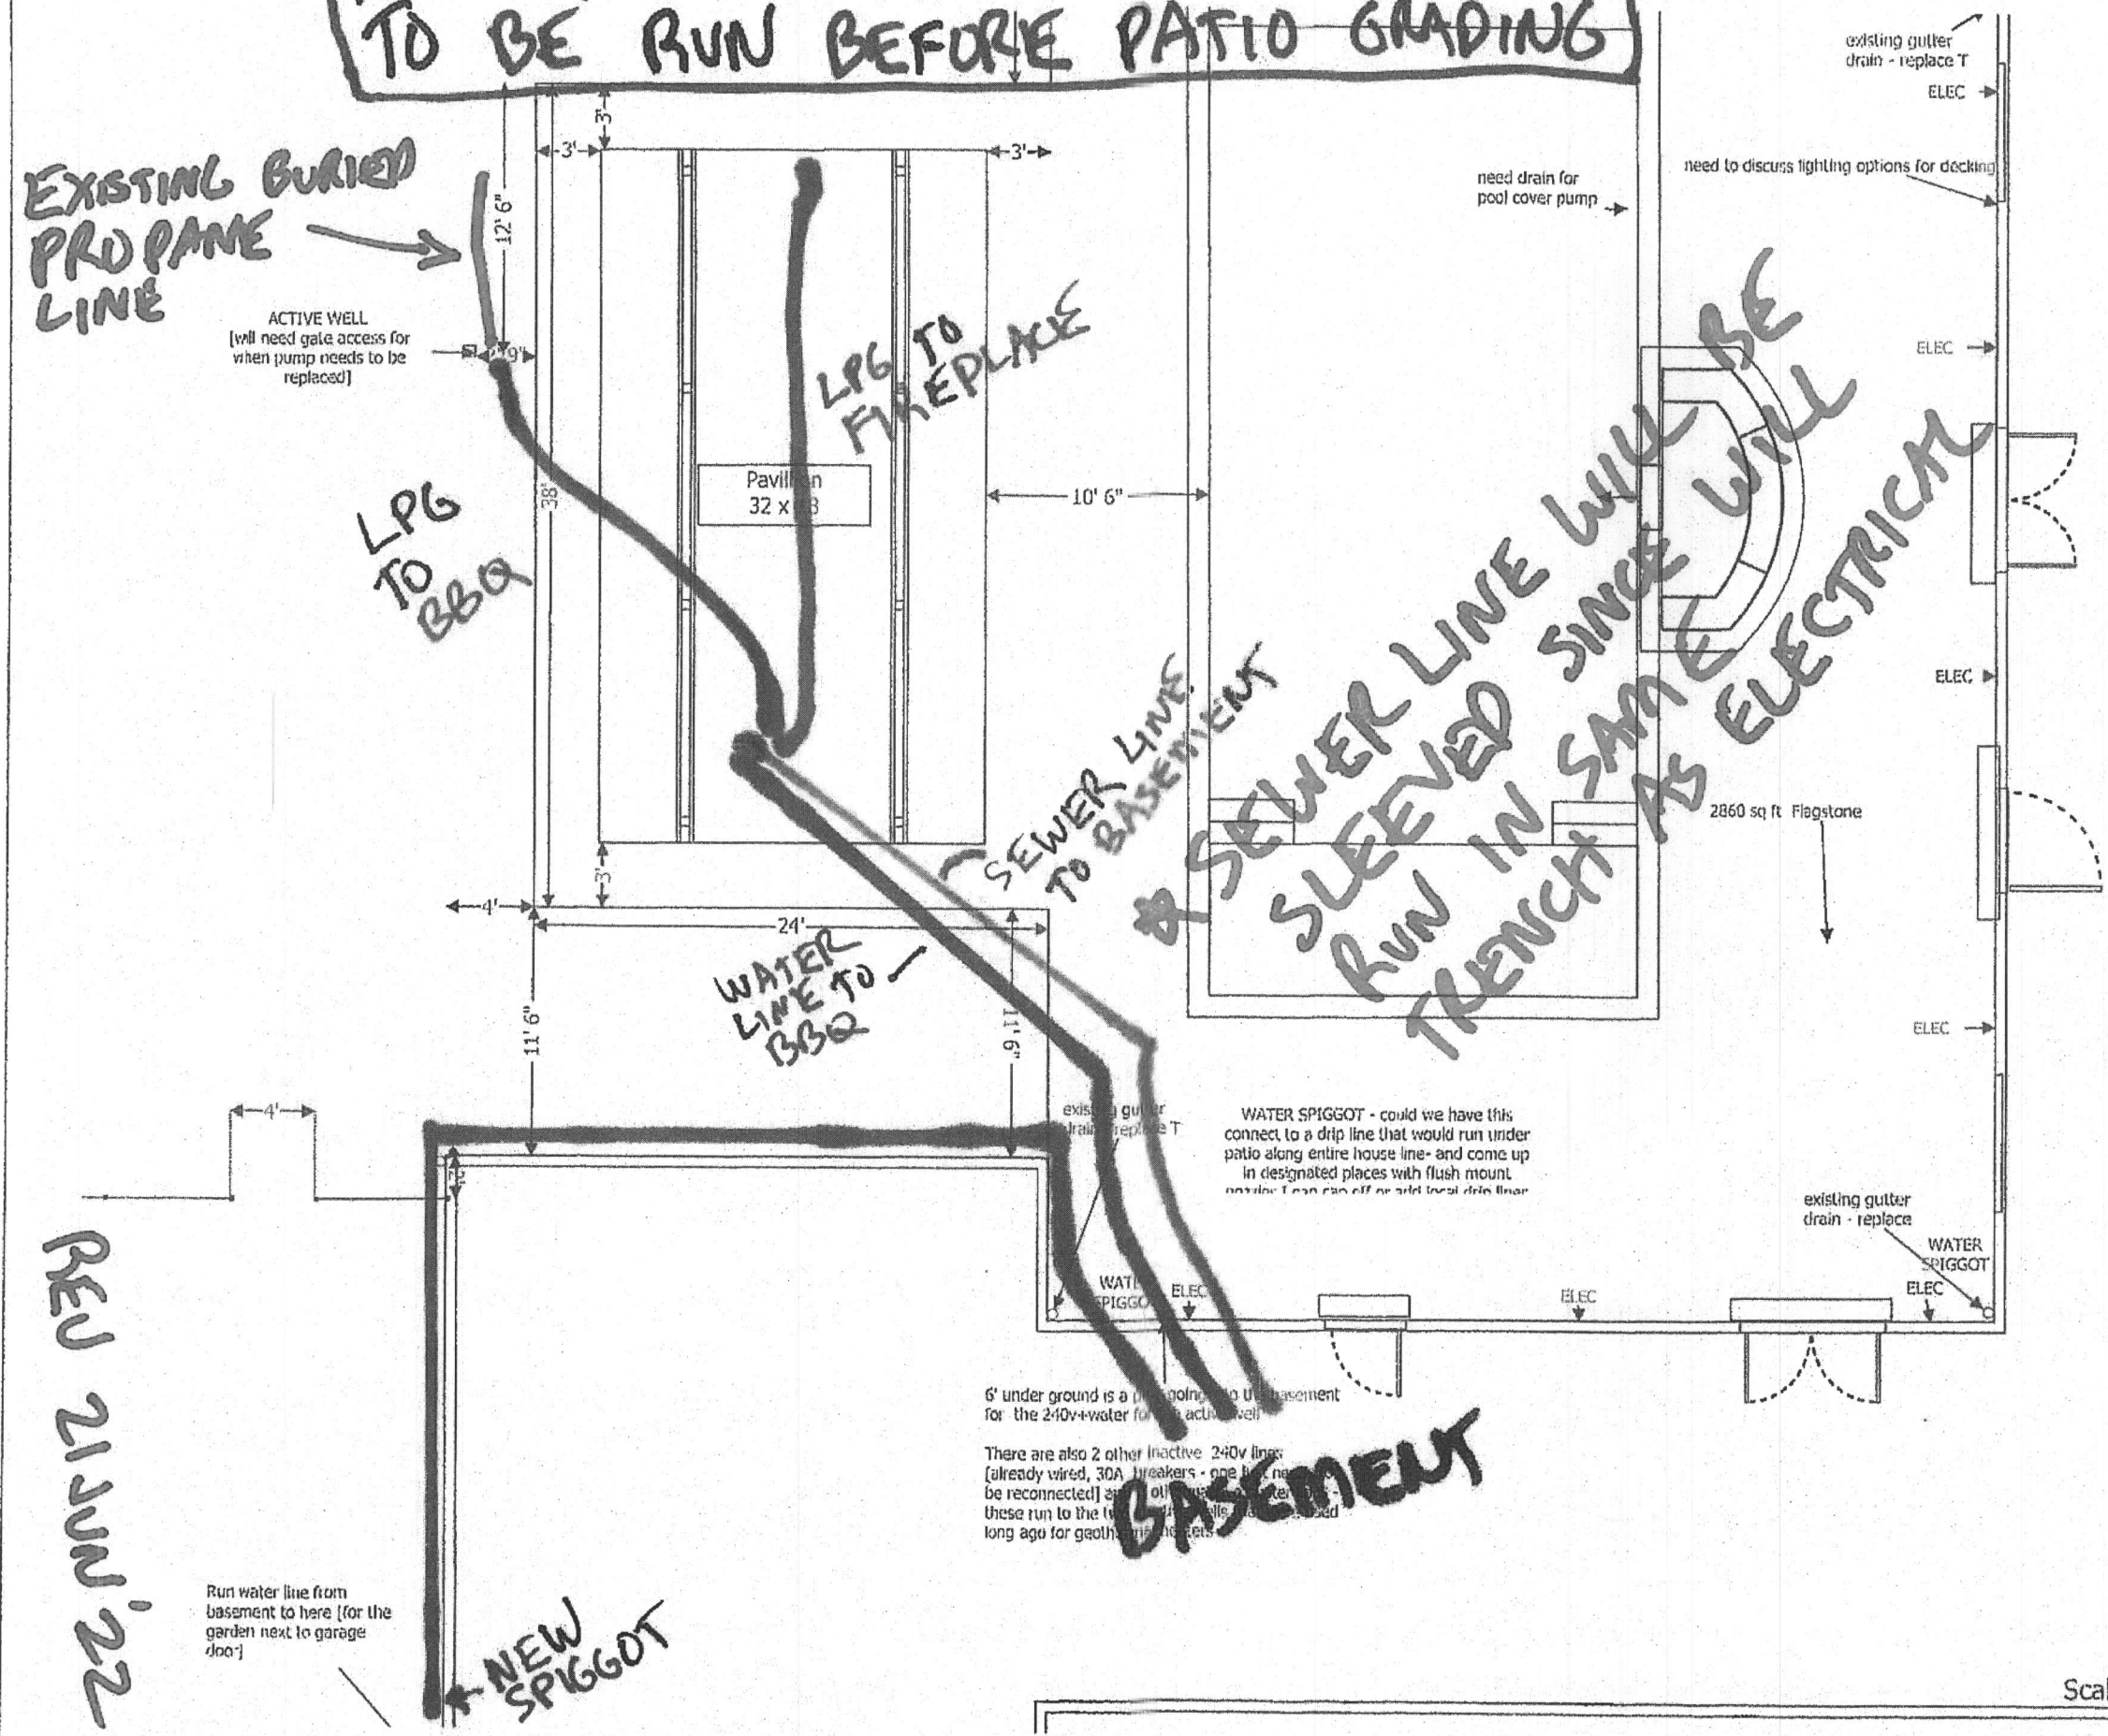 TO BE RUN BEFORE PATIO GRADING
existing gutter
drain - replace T
ELEC
3'
3'
3'
EXISTING BURIED
PROPANE
LINE
12' 6"
need drain for
pool cover pump
need to discuss lighting options for decking
ACTIVE WELL
[will need gate access for
when pump needs to be
replaced]
9'
LPG TO
FIREPLACE
ELEC
38'
Pavillion
32 x
10' 6"
LPG
TO
BBQ
SEWER LINE
TO BASEMENT
☆ SEWER LINE WILL BE
SLEEVED SINCE WILL
RUN IN SAME
TRENCH AS ELECTRICAL
ELEC
2860 sq ft Flagstone
3'
4'
24'
WATER
LINE TO
BBQ
11' 6"
11' 6"
ELEC
4'
existing gutter
drain - replace T
WATER SPIGGOT - could we have this
connect to a drip line that would run under
patio along entire house line- and come up
in designated places with flush mount
2'
existing gutter
drain - replace
WATER
SPIGGOT
ELEC
WATER
SPIGGOT
ELEC
ELEC
6' under ground is a going to the basement
for the 240v+water for active well
There are also 2 other inactive 240v lines
[already wired, 30A breakers - one
be reconnected]
these run to the
long ago for
BASEMENT
REV 21 JUN '22
Run water line from
basement to here [for the
garden next to garage
door]
NEW
SPIGGOT